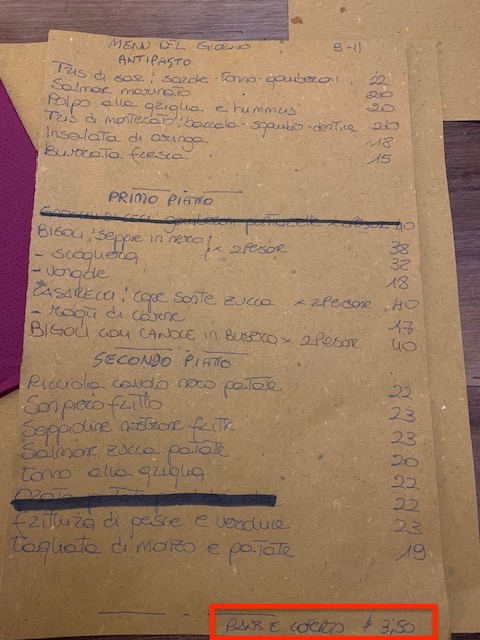 MENU DEL GIORNO 9-11
ANTIPASTO
TRIS di saor: sarde-tonno-gamberoni 22
Salmone marinato 20
Polpo alla griglia e hummus 20
TRIS di mantecato: baccala-sgombro-dentice 20
Insalata di aringa 18
Burrata fresca 15
PRIMO PIATTO
gamberoni puntarelle x 2 Persone 40
BIGOLI: seppie in nero x 2 Persone 38
- scogliera 32
- vongole 18
CASARECCI: cape sante zucca x 2 Persone 40
- Ragù di carne 17
BIGOLI con CANOCE in BUSERA x 2 Persone 40
SECONDO PIATTO
Ricciola cavolo nero patate 22
San Piero fritto 23
Seppioline nostrane fritte 23
Salmone zucca patate 20
Tonno alla griglia 22
22
frittura di pesce e verdure 23
Tagliata di manzo e patate 19
PANE E COPERTO 3,50